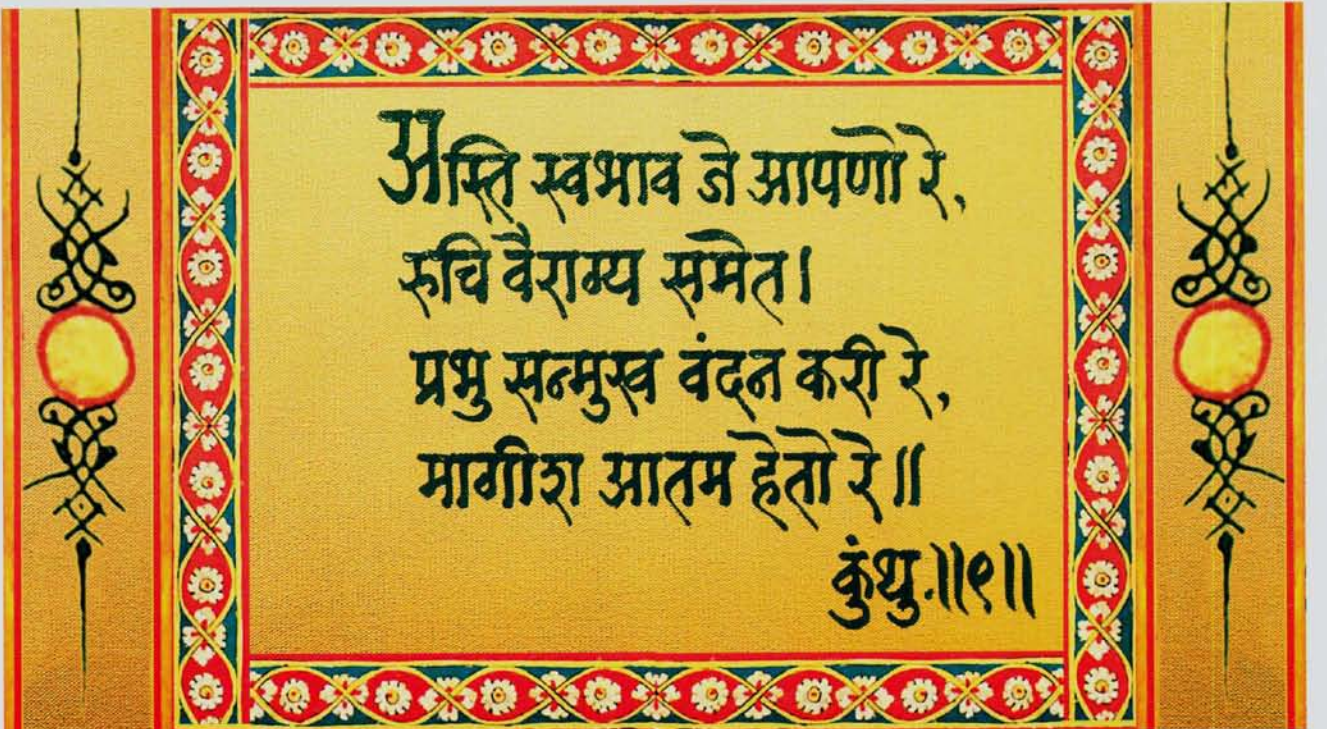 अस्ति स्वभाव जे आपणो रे,
रुचि वैराग्य समेत।
प्रभु सन्मुख वंदन करी रे,
मागीश आतम हेतो रे॥
कुंथु.॥९॥